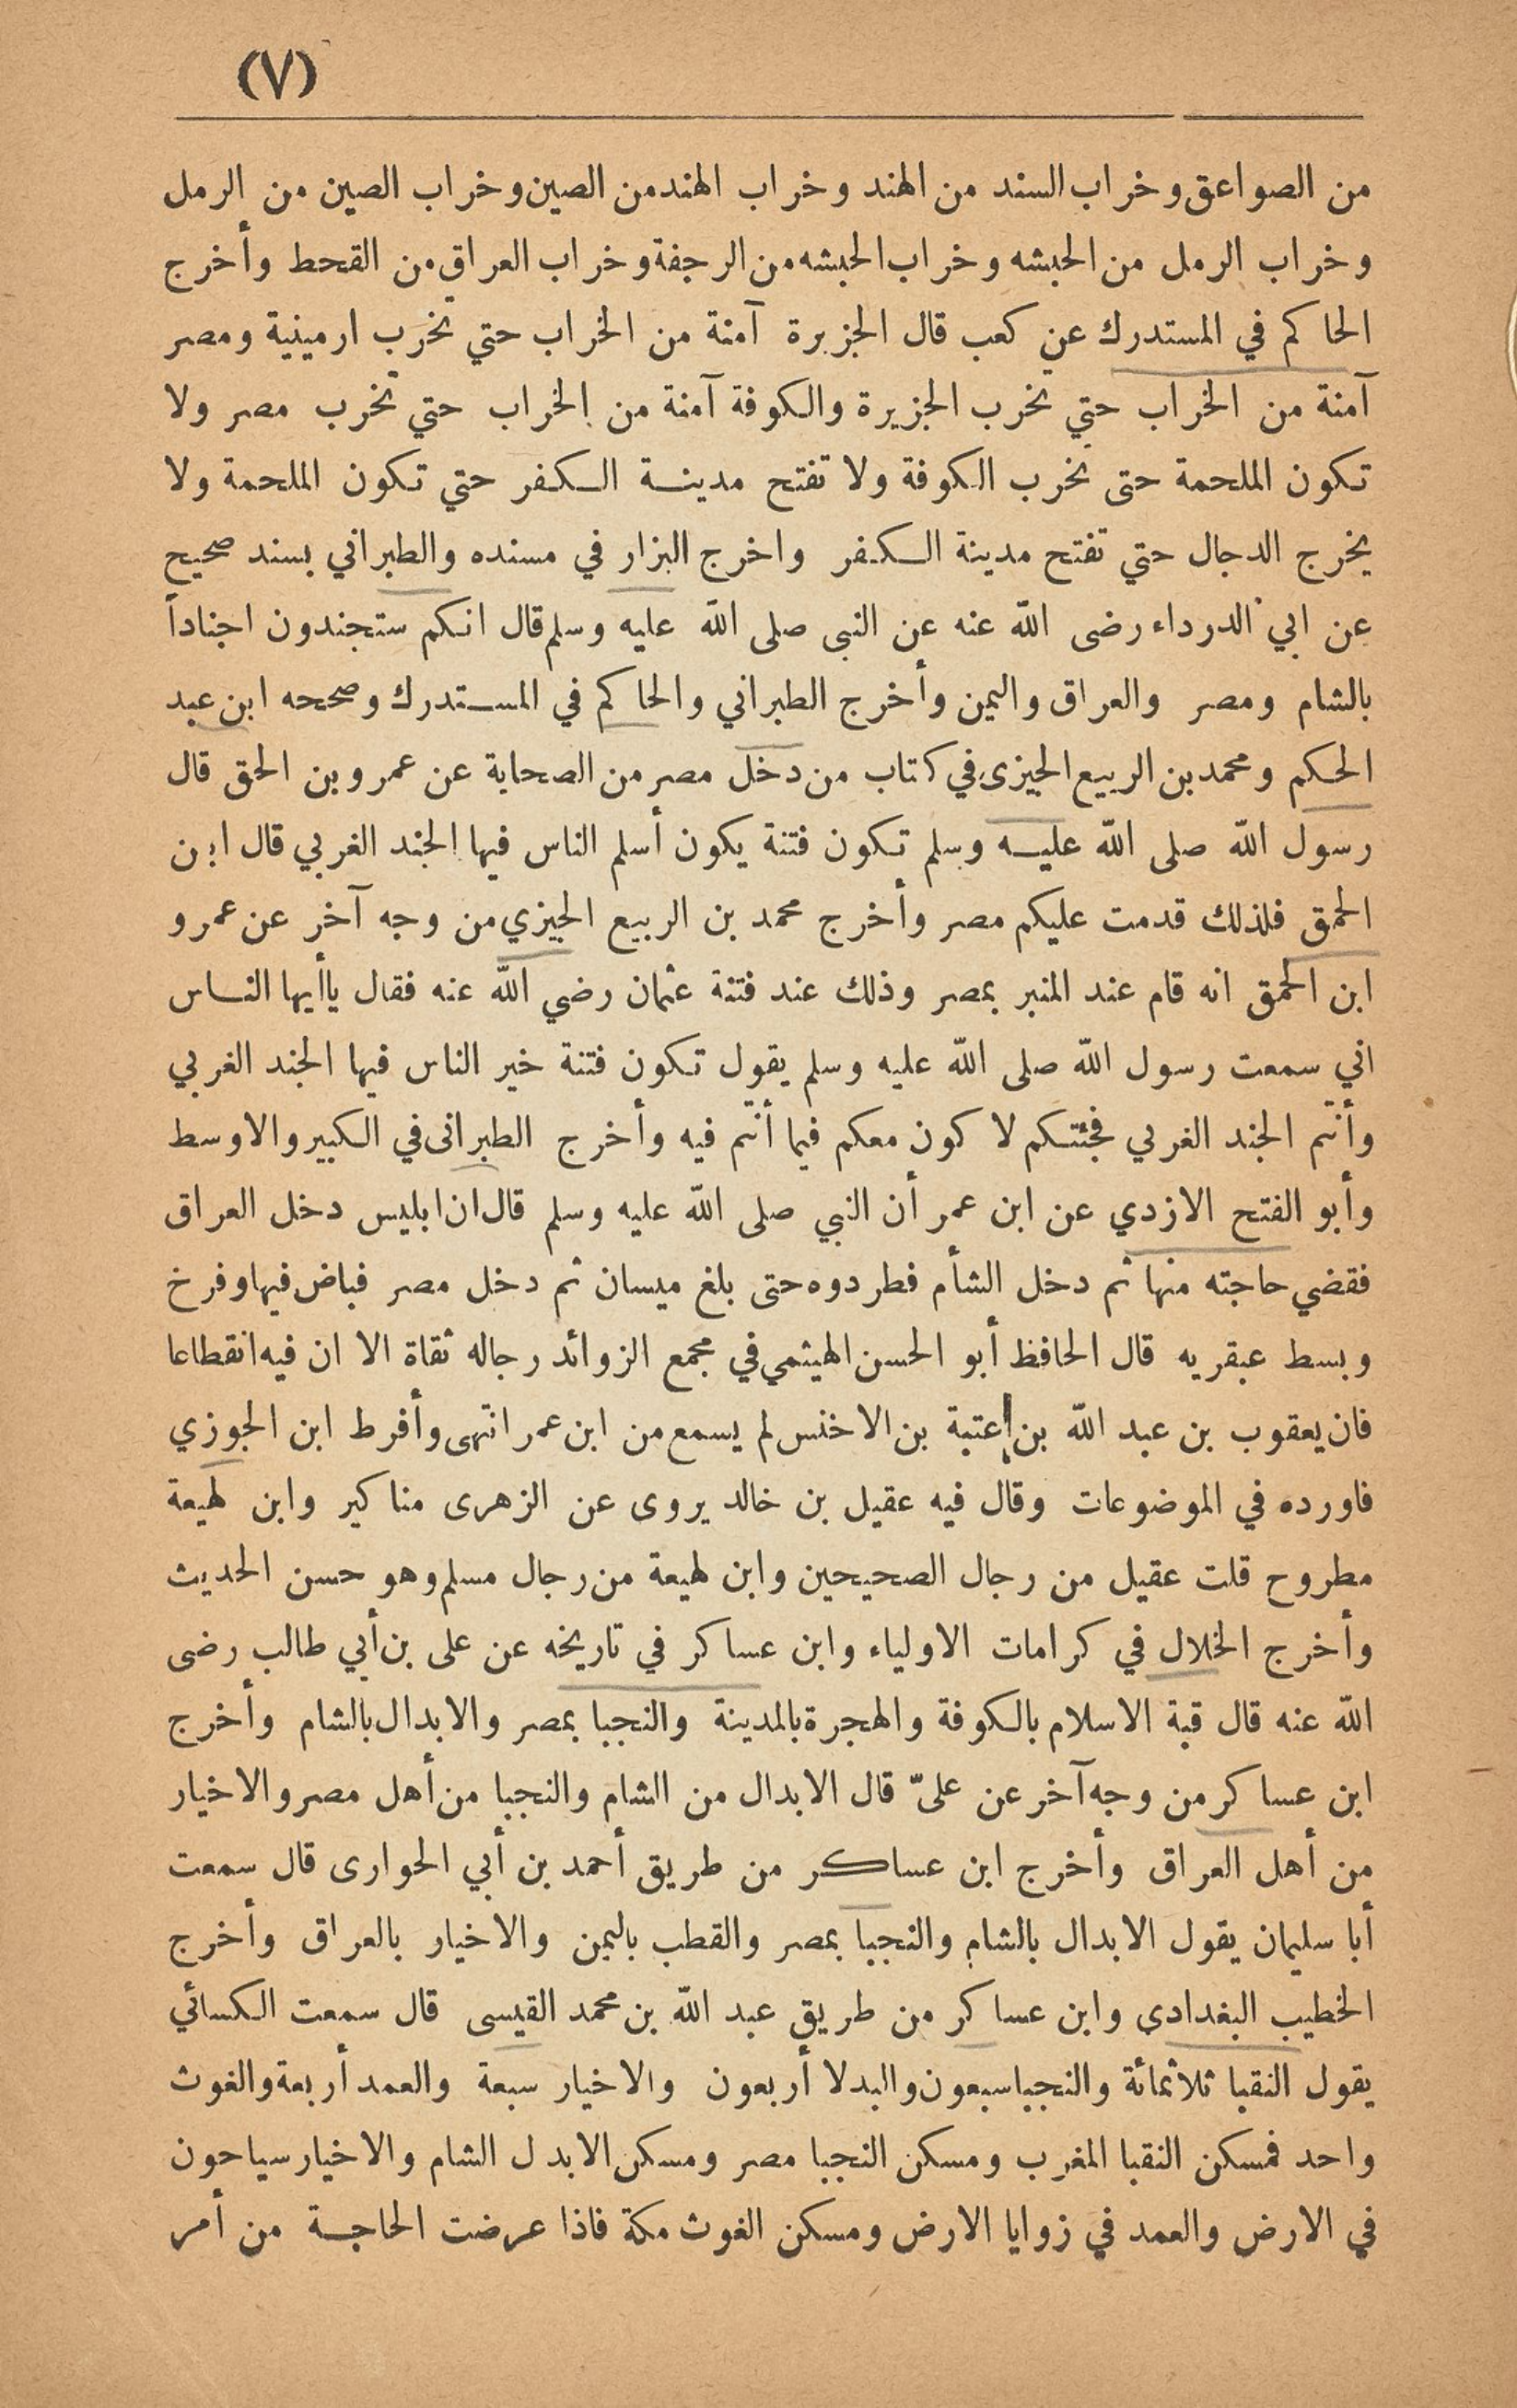 (٧)
من الصواعق وخراب السند من الهند وخراب الهند من الصين وخراب الصين من الرمل
وخراب الرمل من الحبشه وخراب الحبشه من الرجفة وخراب العراق من القحط وأخرج
الحاكم في المستدرك عن كعب قال الجزيرة آمنة من الخراب حتي تخرب ارمينية ومصر
آمنة من الخراب حتي تخرب الجزيرة والكوفة آمنة من الخراب حتي تخرب مصر ولا
تكون الملحمة حتى تخرب الكوفة ولا تفتح مدينة الكفر حتي تكون الملحمة ولا
يخرج الدجال حتي تفتح مدينة الكفر واخرج البزار في مسنده والطبراني بسند صحيح
عن ابي الدرداء رضى الله عنه عن النبى صلى الله عليه وسلم قال انكم ستجندون اجناداً
بالشام ومصر والعراق واليمن وأخرج الطبراني والحاكم في المستدرك وصححه ابن عبد
الحكم ومحمد بن الربيع الجيزى في كتاب من دخل مصر من الصحابة عن عمرو بن الحق قال
رسول الله صلى الله عليه وسلم تكون فتنة يكون أسلم الناس فيها الجند الغربي قال ابن
الحمق فلذلك قدمت عليكم مصر وأخرج محمد بن الربيع الجيزي من وجه آخر عن عمرو
ابن الحمق انه قام عند المنبر بمصر وذلك عند فتنة عثمان رضي الله عنه فقال ياأيها الناس
اني سمعت رسول الله صلى الله عليه وسلم يقول تكون فتنة خير الناس فيها الجند الغربي
وأنتم الجند الغربي فجئتكم لا كون معكم فيما أنتم فيه وأخرج الطبرانى في الكبير والاوسط
وأبو الفتح الازدي عن ابن عمر أن النبي صلى الله عليه وسلم قال ان ابليس دخل العراق
فقضي حاجته منها ثم دخل الشأم فطردوه حتى بلغ ميسان ثم دخل مصر فباض فيها وفرخ
وبسط عبقريه قال الحافظ أبو الحسن الهيثمي في مجمع الزوائد رجاله ثقاة الا ان فيه انقطاعا
فان يعقوب بن عبد الله بن عتبة بن الاخنس لم يسمع من ابن عمر انتهى وأفرط ابن الجوزي
فاورده في الموضوعات وقال فيه عقيل بن خالد يروى عن الزهرى مناكير وابن لهيعة
مطروح قلت عقيل من رجال الصحيحين وابن لهيعة من رجال مسلم وهو حسن الحديث
وأخرج الخلال في كرامات الاولياء وابن عساكر في تاريخه عن على بن أبي طالب رضى
الله عنه قال قبة الاسلام بالكوفة والهجرة بالمدينة والنجبا بمصر والابدال بالشام وأخرج
ابن عساكر من وجه آخر عن علىّ قال الابدال من الشام والنجبا من أهل مصر والاخيار
من أهل العراق وأخرج ابن عساكر من طريق أحمد بن أبي الحوارى قال سمعت
أبا سليمان يقول الابدال بالشام والنجبا بمصر والقطب باليمن والاخيار بالعراق وأخرج
الخطيب البغدادى وابن عساكر من طريق عبد الله بن محمد القيسى قال سمعت الكسائي
يقول النقبا ثلاثمائة والنجبا سبعون والبدلا أربعون والاخيار سبعة والعمد أربعة والغوث
واحد فمسكن النقبا المغرب ومسكن النجبا مصر ومسكن الابدل الشام والاخيار سياحون
في الارض والعمد في زوايا الارض ومسكن الغوث مكة فاذا عرضت الحاجة من أمر